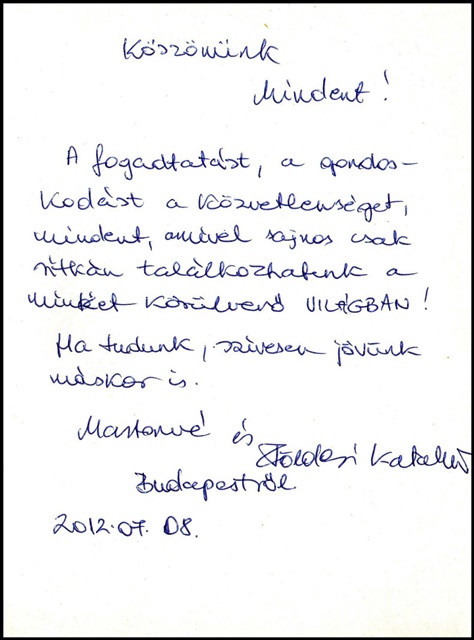 Köszönünk
Mindent!
A fogadtatást, a gondos-
kodást a közvetlenséget,
mindent, amivel sajnos csak
ritkán találkozhatunk a
minket körülvevő VILÁGBAN!
Ha tudunk, szívesen jövünk
máskor is.
és
Budapestről
2012.07.08.